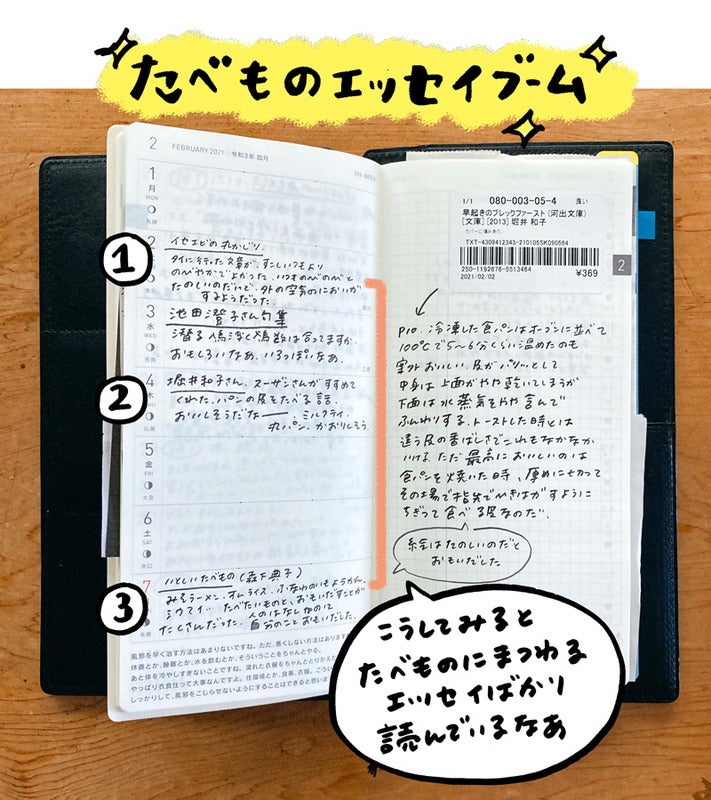 たべものエッセイブーム
2 FEBRUARY 2021 令和3年 如月
5th WEEK
1
月
MON
先勝
①
2
イセエビの丸かじり。
タイに行った文章が、すこしいつもより
のべやかでよかった。いつものべのべと
たのしいのだけど、外の空気のにおいが
するようだった。
3
水
WED
先負
池田澄子さん句集
潜る鳰浮く鳰数は合ってますか
おもしろいなあ、いろっぽいなあ。
②
4
木
仏滅
堀井和子さん。スーザンさんがすすめて
くれた。パンの皮をたべる話。
おいしそうだなー。ミルクティ、
丸パン、かおりしそう。
5
金
FRI
大安
6
土
SAT
赤口
③
7
先勝
いとしいたべもの(森下典子)
みそラーメン、オムライス、ふなわのいもようかん、
ミウマイ… たべたいものと、おもいだすことが
たくさんだった。人のはなしなのに
自分のことおもいだした。
風邪を早く治す方法はあまりないですね。ただ、悪くしない方法はあります
休養とか、睡眠とか、水を飲むとか、そういうことをちゃんとやる。
あと体を冷やしすぎないことですね。濡れた衣服をちゃんととりかえた
やっぱり衣食住って大事なんですよ。住環境とか、食事、衣服。こういう
しっかりして、風邪をこじらせないようにすることはできると思いま
1/1 080-003-05-4 良い
早起きのブレックファースト (河出文庫)
[文庫] [2013] 堀井 和子
カバーに傷みあり。
TXT-4309412343-210105SK090564
250-1192676-5513464
2021/02/02
¥369
2
P10. 冷凍した食パンはオーブンに並べて
100℃で5〜6分くらい温めたのも
案外おいしい。皮がパリッとして
中身は上面がやや乾いてしまうが
下面は水蒸気をやや含んで
ふんわりする。トーストした時とは
違う皮の香ばしさでこれもなかなか
いける。ただ最高においしいのは
食パンを焼いた時、厚めに切って
その場で指先でひきはがすように
ちぎって食べる皮なのだ。
絵はたのしいのだと
おもいだした
こうしてみると
たべものにまつわる
エッセイばかり
読んでいるなあ